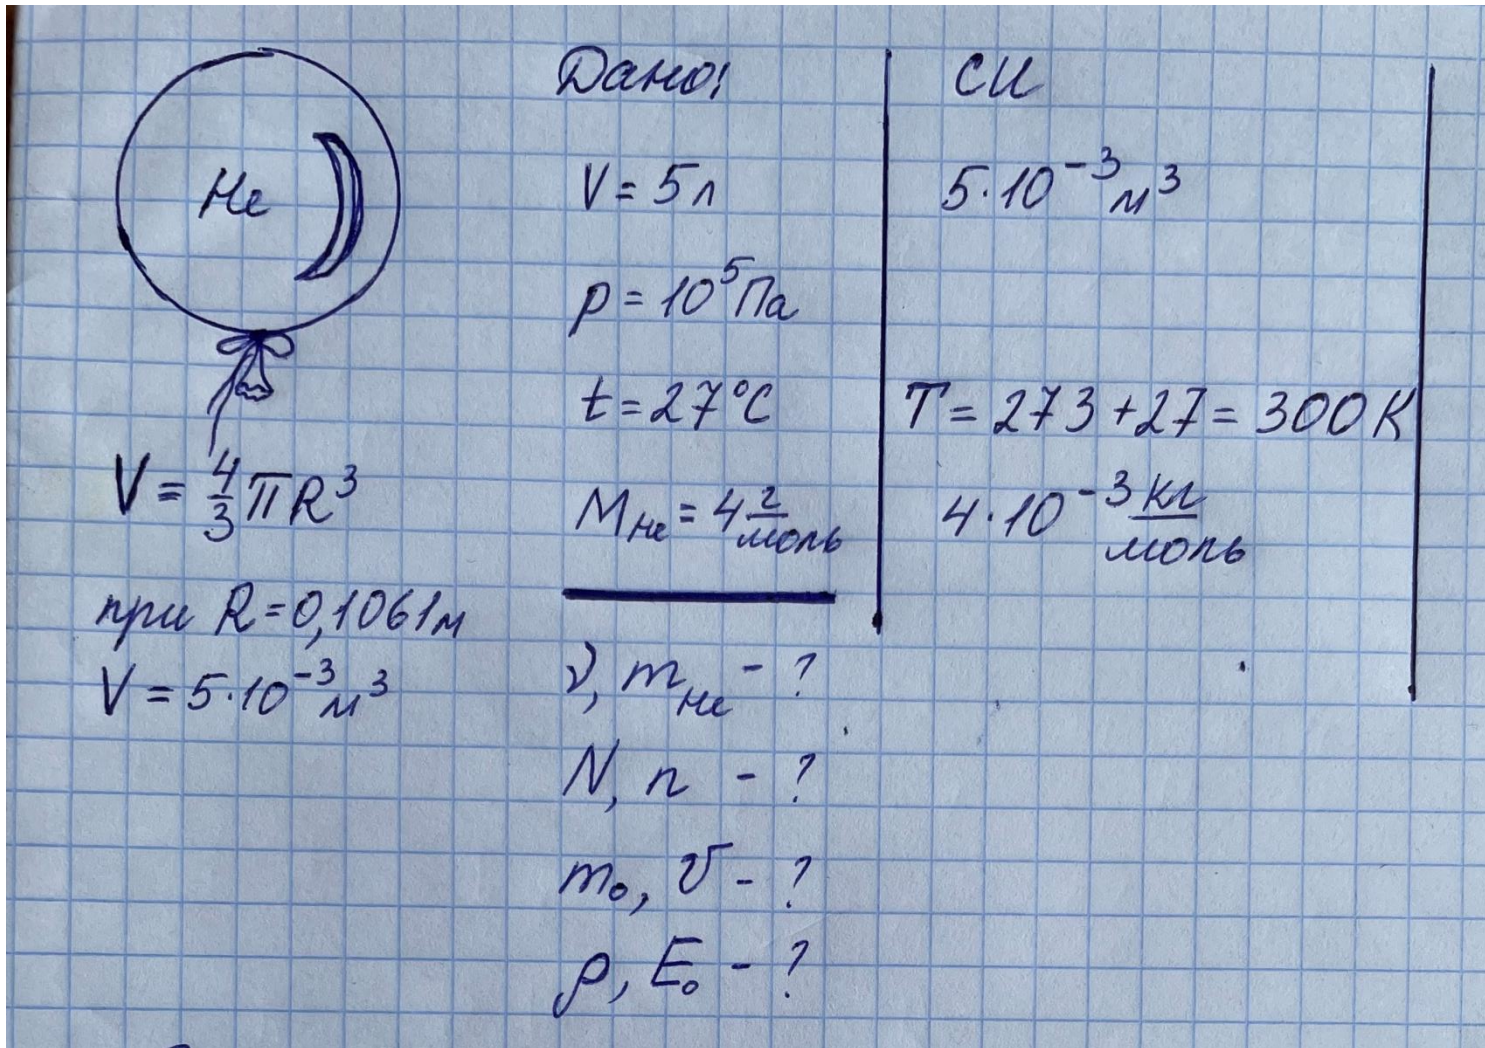 He
V = 4/3 πR³
при R = 0,1061м
V = 5·10⁻³м³
Дано:
V = 5л
p = 10⁵Па
t = 27°C
M_He = 4 г/моль
ν, m_He - ?
N, n - ?
m₀, υ - ?
ρ, E₀ - ?
СИ
5·10⁻³м³
T = 273 + 27 = 300К
4·10⁻³ кг/моль